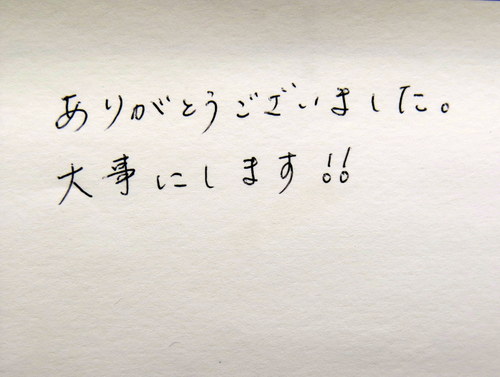 ありがとうございました。
大事にします!!